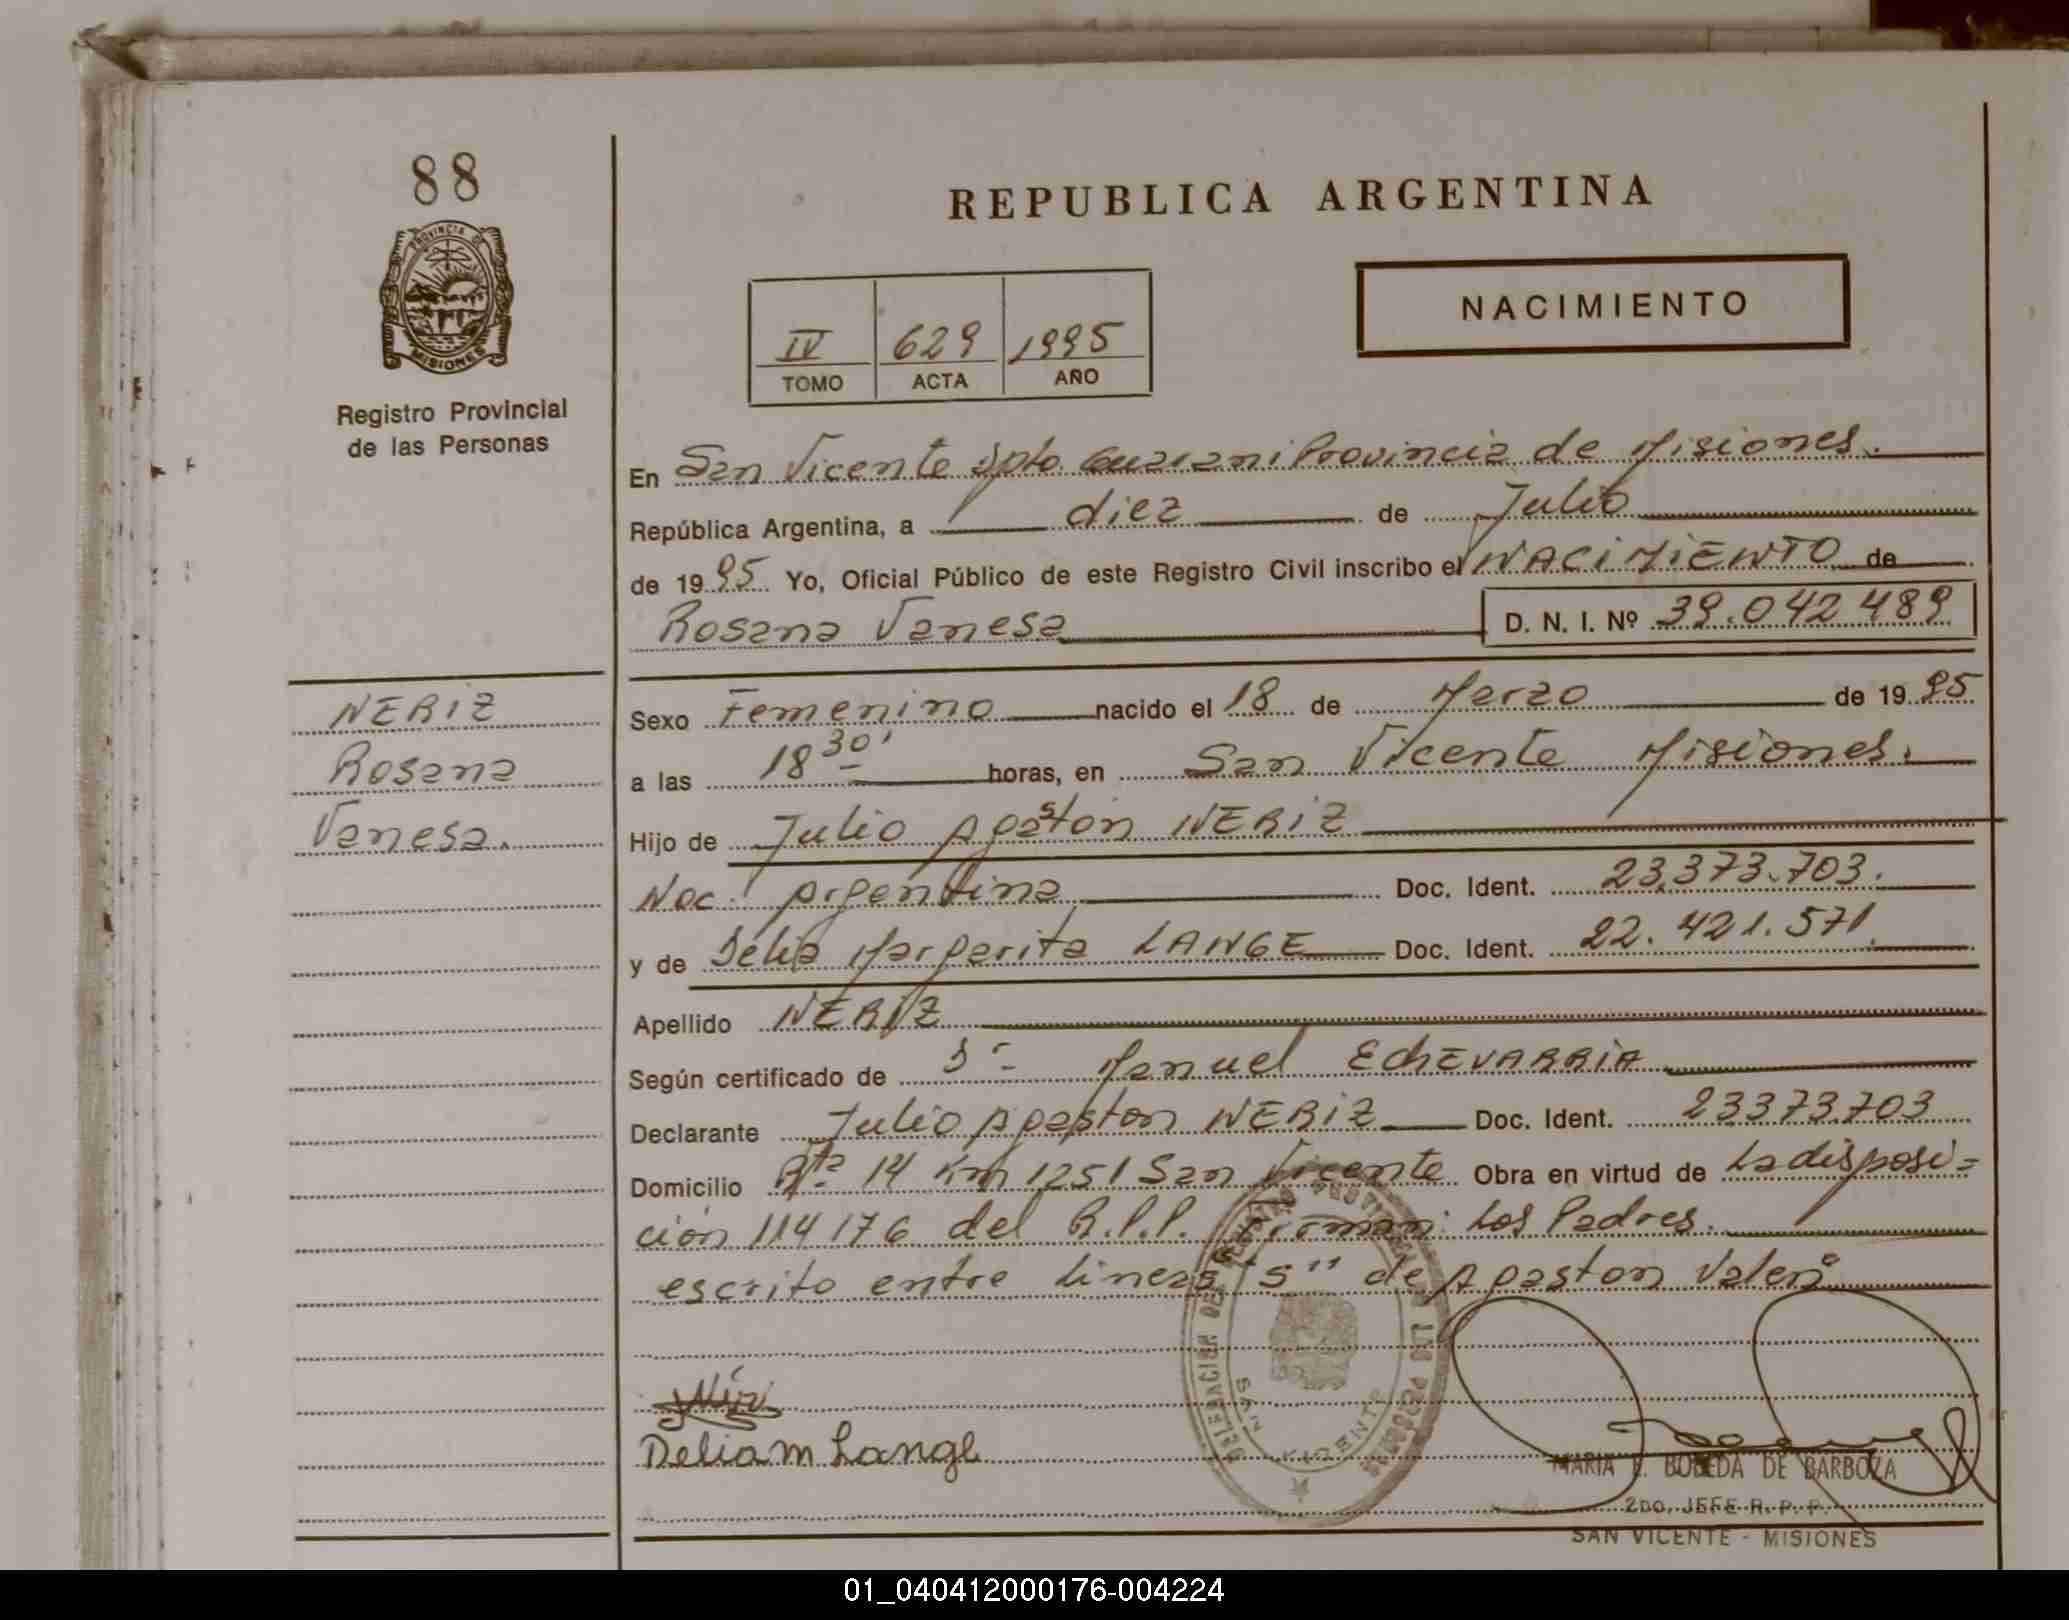 88
PROVINCIA DE
MISIONES
Registro Provincial
de las Personas
REPUBLICA ARGENTINA
NACIMIENTO
IV 629 1995
TOMO ACTA AÑO
En San Vicente Dpto Guarani Provincia de Misiones.
República Argentina, a diez de Julio
de 1995 Yo, Oficial Público de este Registro Civil inscribo el NACIMIENTO de
Rosana Vanesa D. N. I. Nº 39.042489
NERIZ
Rosana
Vanesa.
Sexo Femenino nacido el 18 de Marzo de 1995
a las 18 30' horas, en San Vicente Misiones.
Hijo de Julio Agastón NERIZ
Nac. Argentina Doc. Ident. 23.373.703.
y de Delia Margarita LANGE Doc. Ident. 22.421.571.
Apellido NERIZ
Según certificado de Dr Manuel EchEVARRIA
Declarante Julio Agaston NERIZ Doc. Ident. 23373.703
Domicilio Rta 14 Km 1251 San Vicente Obra en virtud de La disposi=
ción 114176 del R.P.P. Firman: Los Padres.
escrito entre lineas "s" de Agaston Vale
Delia M Lange
SAN VICENTE
MARIA E. BOBEDA DE BARBOZA
2DO. JEFE R. P. P.
SAN VICENTE - MISIONES
01_040412000176-004224